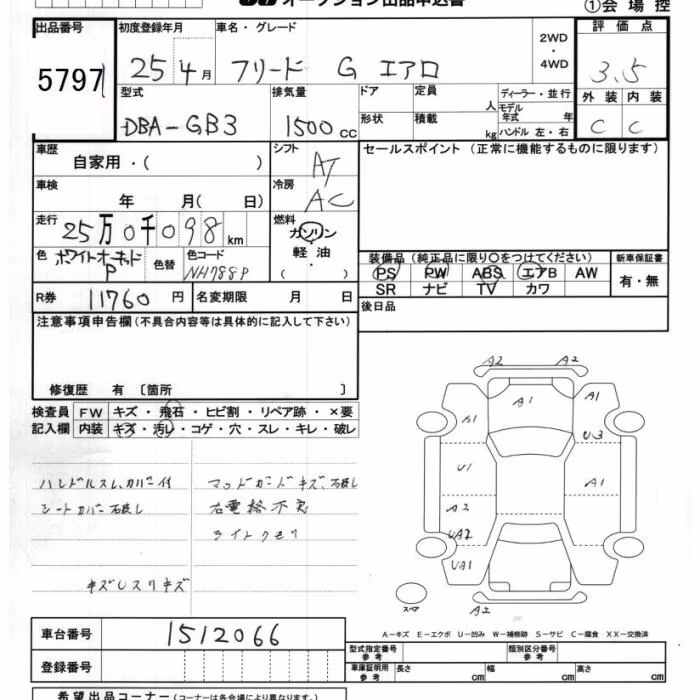 オークション出品申込書
①会場控
出品番号
5797
初度登録年月
25 4月
車名・グレード
フリード G エアロ
2WD
・
4WD
評価点
3.5
外装 内装
C C
型式
DBA-GB3
排気量
1500cc
ドア
形状
定員
人
積載
kg
ディーラー・並行
モデル年式 年
ハンドル 左・右
車歴
自家用・( )
シフト
AT
車検
年 月( 日)
冷房
AC
セールスポイント（正常に機能するものに限ります）
走行
25万0千098km
燃料
ガソリン
・
軽油
・
( )
色
ホワイトオーキッドP
色替
色コード
NH788P
装備品（純正品に限り〇をつけてください）
PS PW ABS エアB AW
SR ナビ TV カワ
新車保証書
有・無
R券
11760円
名変期限 月 日
後日品
注意事項申告欄(不具合内容等は具体的に記入して下さい)
修復歴 有〔箇所 〕
検査員
記入欄
FW キズ・飛石・ヒビ割・リペア跡・×要
内装 キズ・汚れ・コゲ・穴・スレ・キレ・破レ
ハンドルスレ、カバー付
シートカバー破レ
キズレスリキズ
マッドガードキズ、破レ
右電格不良
ライトクモリ
A2 A2
A1
A1 A1
U3
U1
A1
A2
UA2
UA1
スペア
A2
A-キズ E-エクボ U-凹み W-補修跡 S-サビ C-腐食 XX-交換済
車台番号
1512066
登録番号
型式指定番号
参考
類別区分番号
参考
車庫証明用
参考
長さ cm
幅 cm
高さ cm
希望出品コーナー(コーナーは各会場により異なります。)